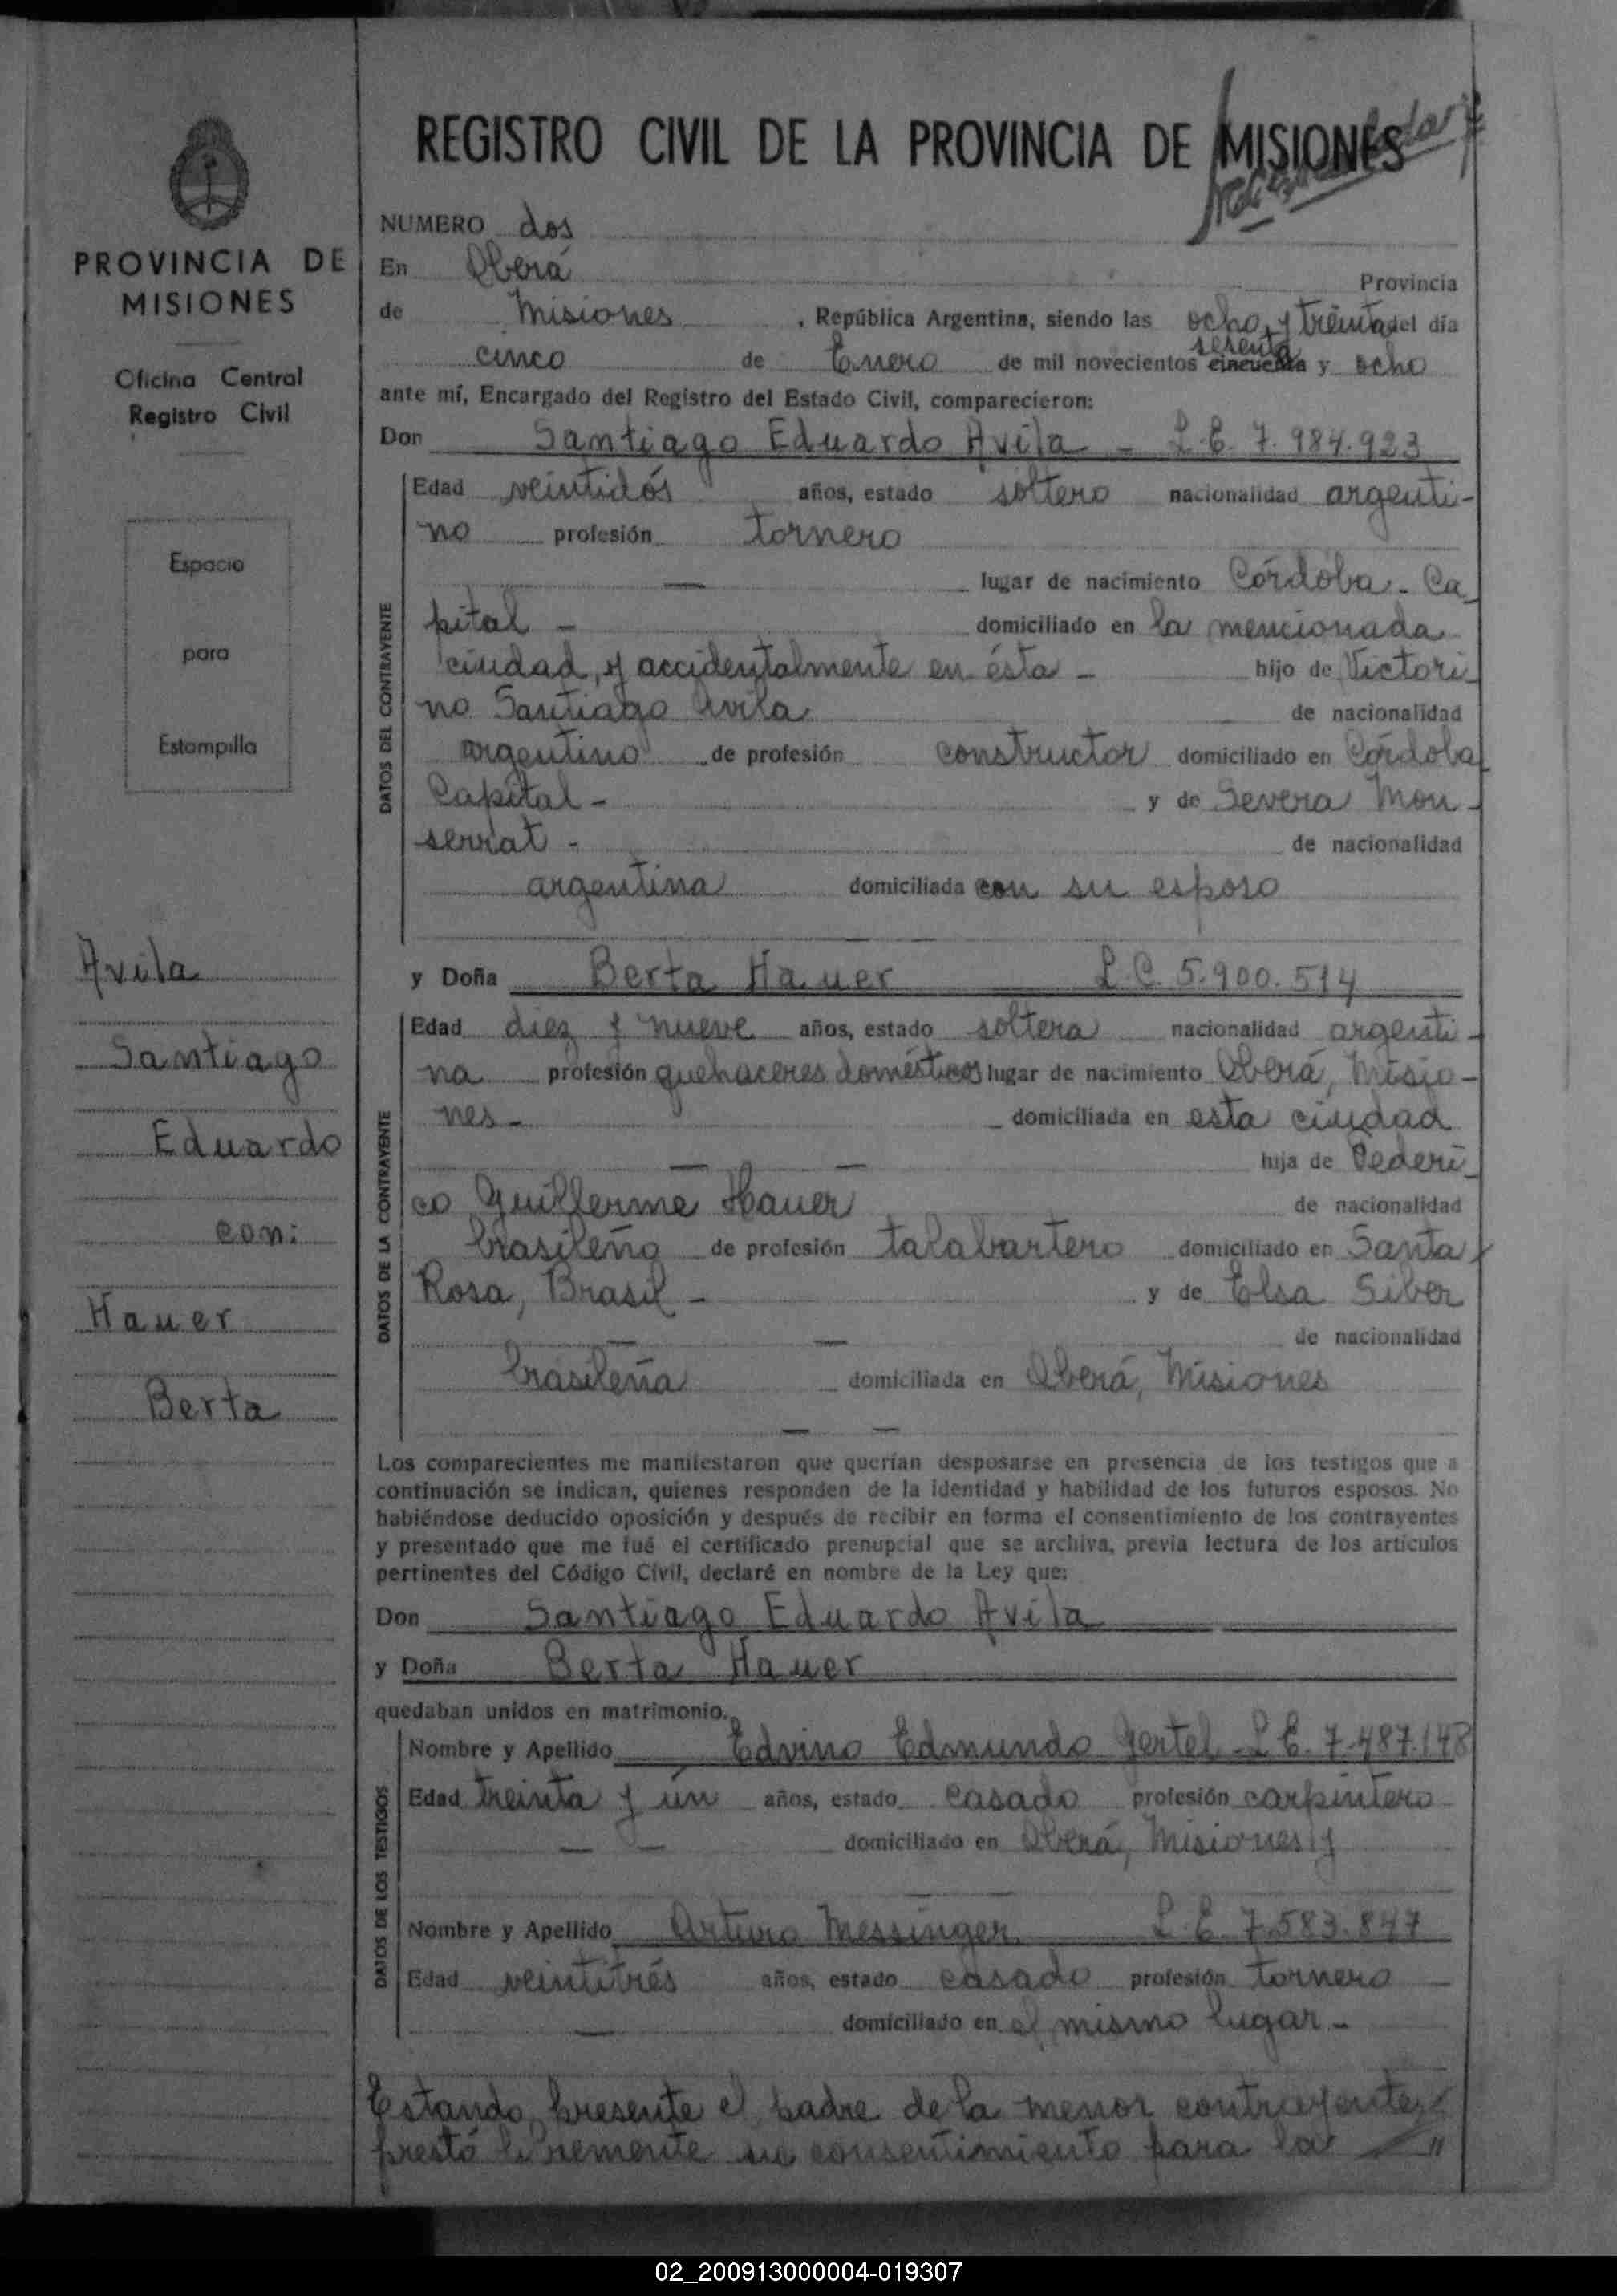 REGISTRO CIVIL DE LA PROVINCIA DE MISIONES
PROVINCIA DE
MISIONES
Oficina Central
Registro Civil
Espacio
para
Estampilla
Avila
Santiago
Eduardo
con:
Hauer
Berta
NUMERO dos
En Oberá Provincia
de Misiones, República Argentina, siendo las ocho y treinta del día
sesenta
cinco de Enero de mil novecientos cincuenta y ocho
ante mí, Encargado del Registro del Estado Civil, comparecieron:
Don Santiago Eduardo Avila - L.E. 7.984.923
DATOS DEL CONTRAYENTE
Edad veintidós años, estado soltero nacionalidad argenti-
no profesión tornero
— lugar de nacimiento Córdoba - Ca-
pital - domiciliado en la mencionada
ciudad, y accidentalmente en ésta - hijo de Victori-
no Santiago Avila de nacionalidad
argentino de profesión constructor domiciliado en Córdoba
Capital - y de Severa Mon-
serrat - de nacionalidad
argentina domiciliada con su esposo
y Doña Berta Hauer L.C. 5.900.514
DATOS DE LA CONTRAYENTE
Edad diez y nueve años, estado soltera nacionalidad argenti-
na profesión quehaceres domésticos lugar de nacimiento Oberá, Misio-
nes - domiciliada en esta ciudad
— — hija de Federi-
co Guillerme Hauer de nacionalidad
brasileño de profesión talabartero domiciliado en Santa
Rosa, Brasil - y de Elsa Siber
— — de nacionalidad
brasileña domiciliada en Oberá, Misiones
— —
Los comparecientes me manifestaron que querían desposarse en presencia de los testigos que a
continuación se indican, quienes responden de la identidad y habilidad de los futuros esposos. No
habiéndose deducido oposición y después de recibir en forma el consentimiento de los contrayentes
y presentado que me fué el certificado prenupcial que se archiva, previa lectura de los artículos
pertinentes del Código Civil, declaré en nombre de la Ley que:
Don Santiago Eduardo Avila
y Doña Berta Hauer
quedaban unidos en matrimonio.
DATOS DE LOS TESTIGOS
Nombre y Apellido Edvino Edmundo Jertel - L.E. 7.487.148
Edad treinta y ún años, estado casado profesión carpintero
— — domiciliado en Oberá, Misiones y
Nombre y Apellido Arturo Messinger L.E. 7.583.847
Edad veintitrés años, estado casado profesión tornero
— domiciliado en el mismo lugar -
Estando presente el padre de la menor contrayente,
prestó libremente su consentimiento para la — "
02_200913000004-019307